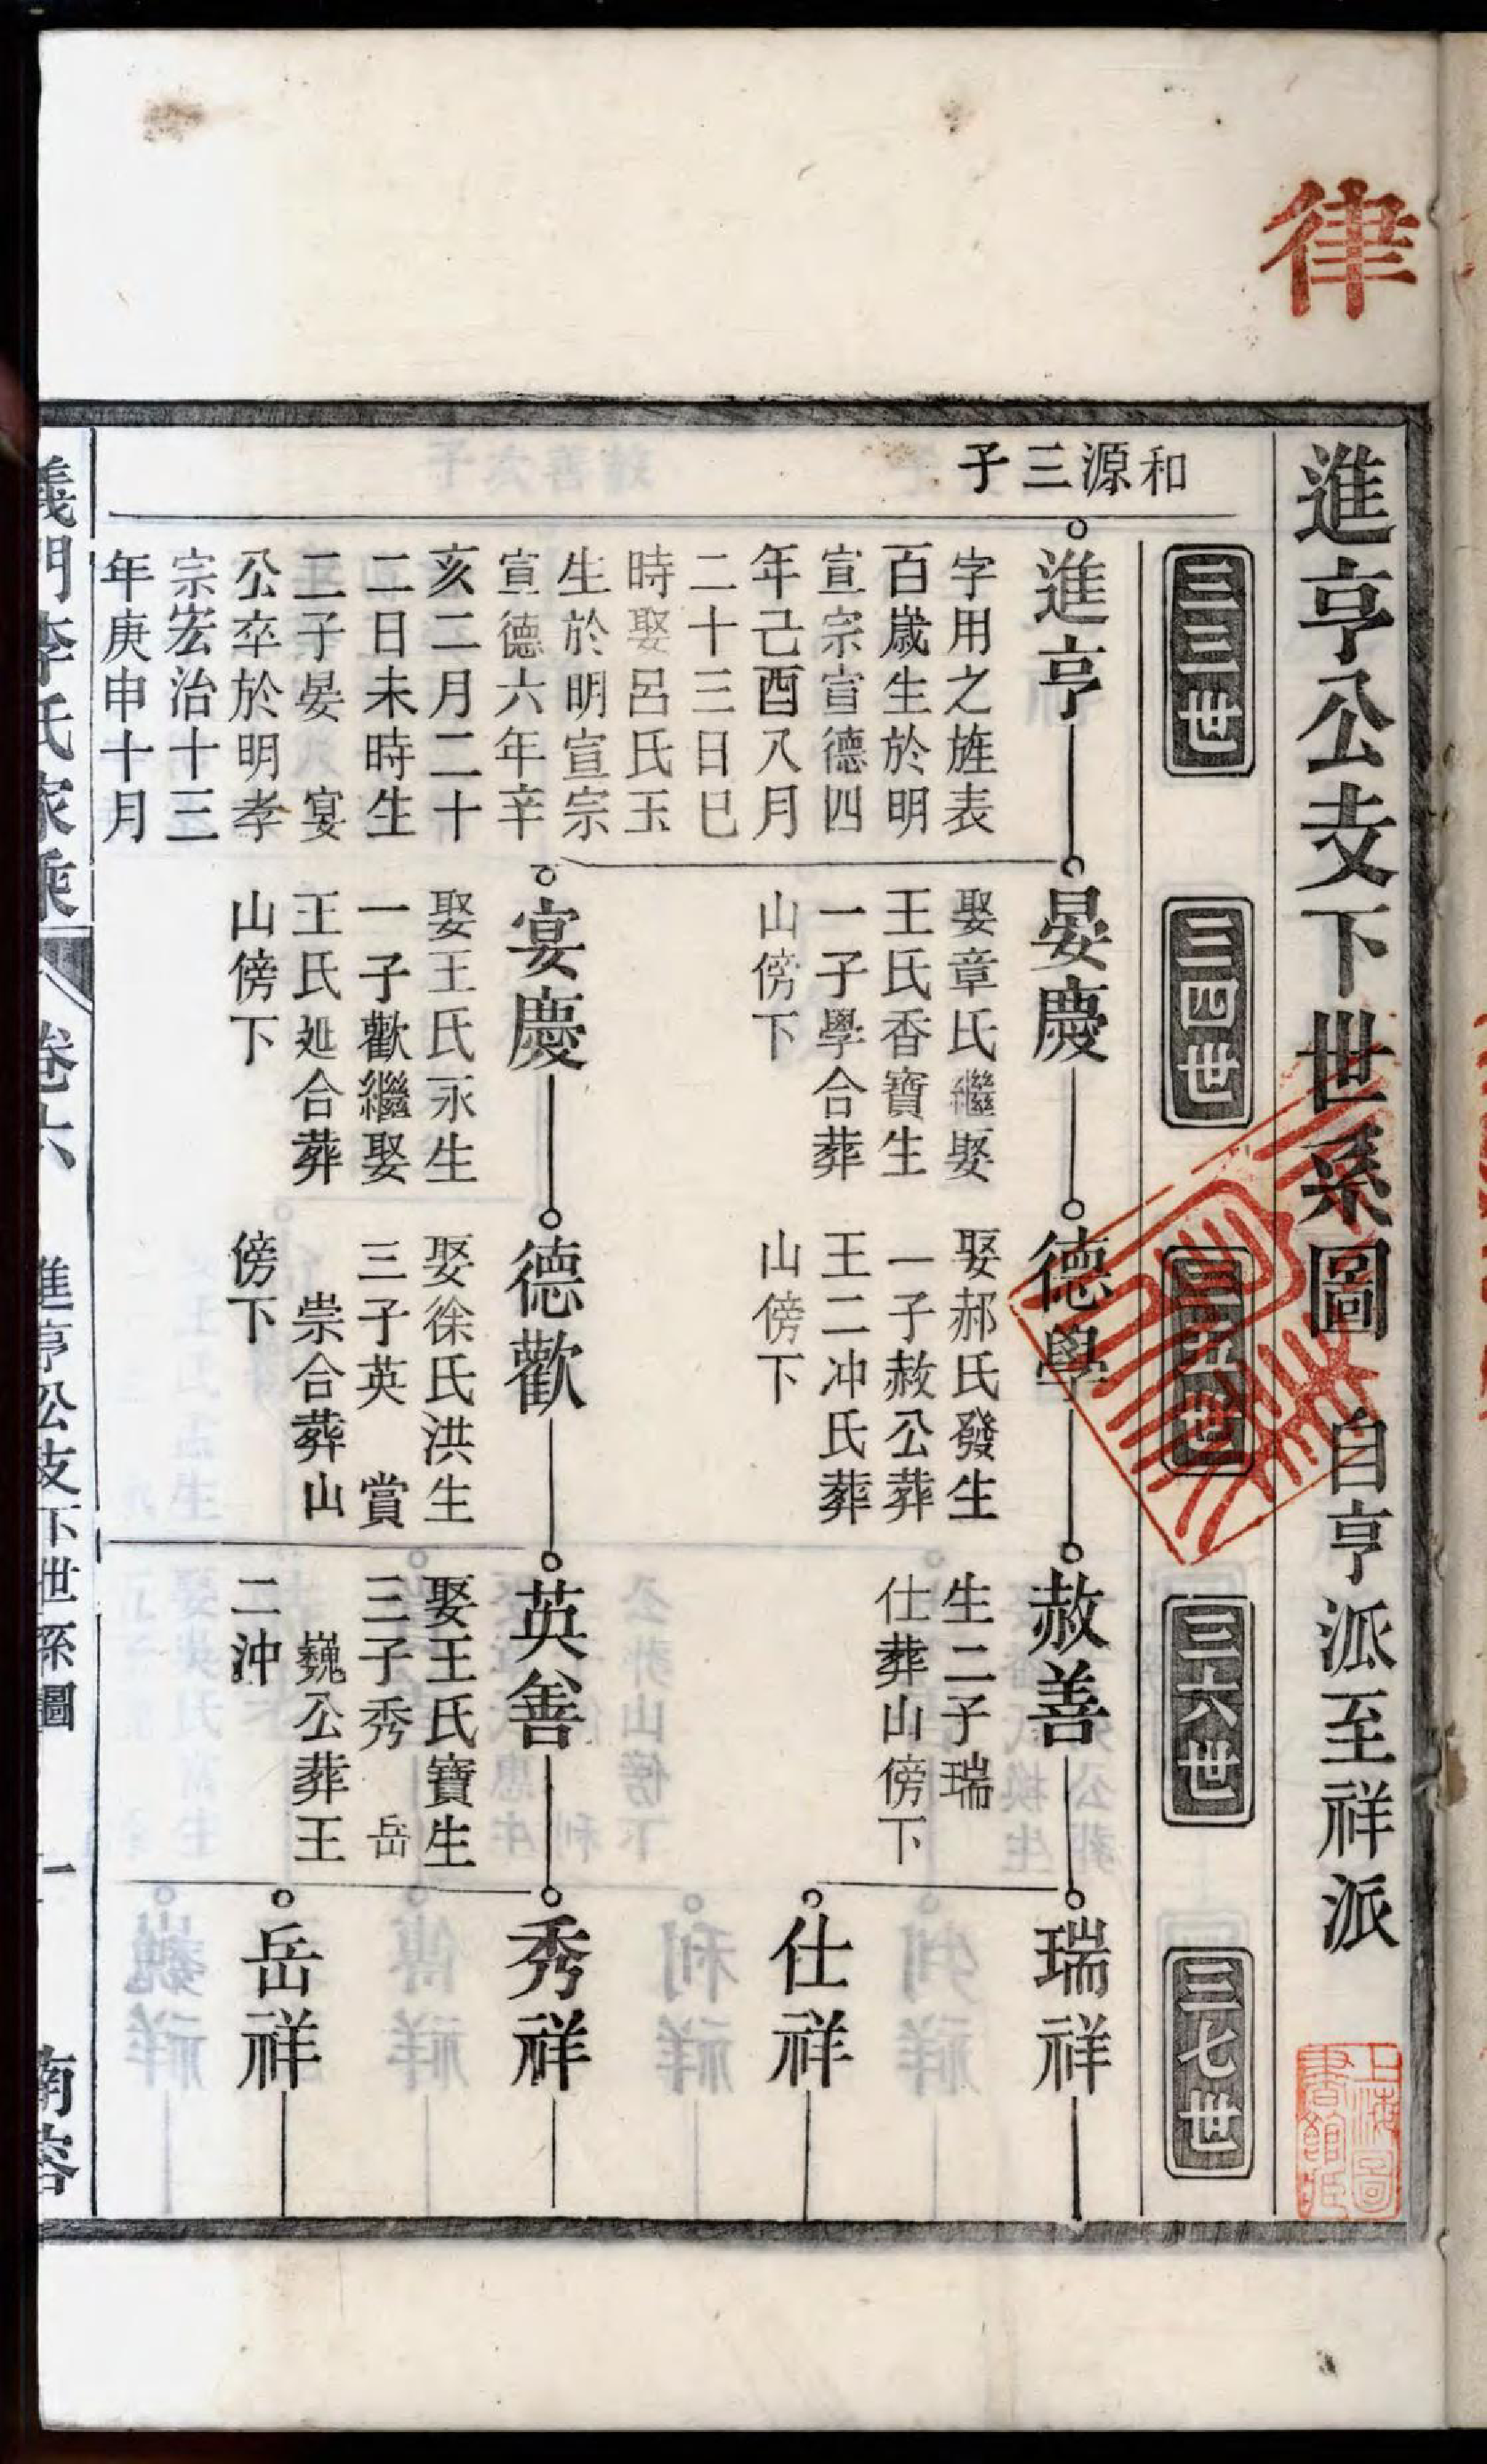 律
進亨公支下世系圖 自亨派至祥派
上海圖書館藏
三三世
三四世
三五世
三六世
三七世
和源三子
進亨
字用之旌表
百歲生於明
宣宗宣德四
年己酉八月
二十三日巳
時娶呂氏玉
生於明宣宗
宣德六年辛
亥二月二十
二日未時生
二子晏 宴
公卒於明孝
宗宏治十三
年庚申十月
晏慶
娶章氏繼娶
王氏香寶生
一子學合葬
山傍下
宴慶
娶王氏永生
一子歡繼娶
王氏延合葬
山傍下
德學
娶郝氏發生
一子赦公葬
王二冲氏葬
山傍下
德歡
娶徐氏洪生
三子英 賞
崇合葬山
傍下
赦善
生二子瑞
仕葬山傍下
英善
娶王氏寶生
三子秀 岳
巍公葬王
二沖
瑞祥
仕祥
秀祥
岳祥
義門李氏家乘
卷六 進亨公支下世系圖 一 南容